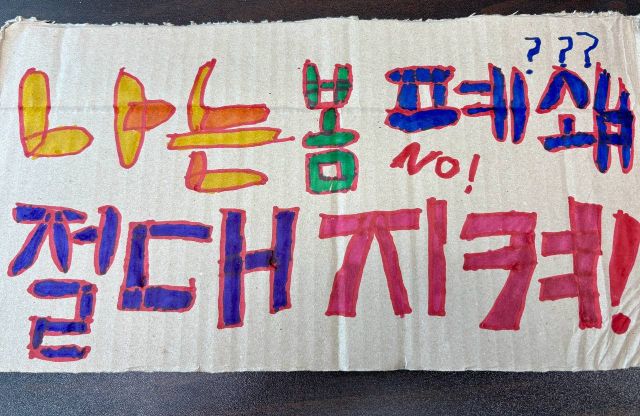 ???
나는 봄 폐쇄
NO!
절대 지켜!